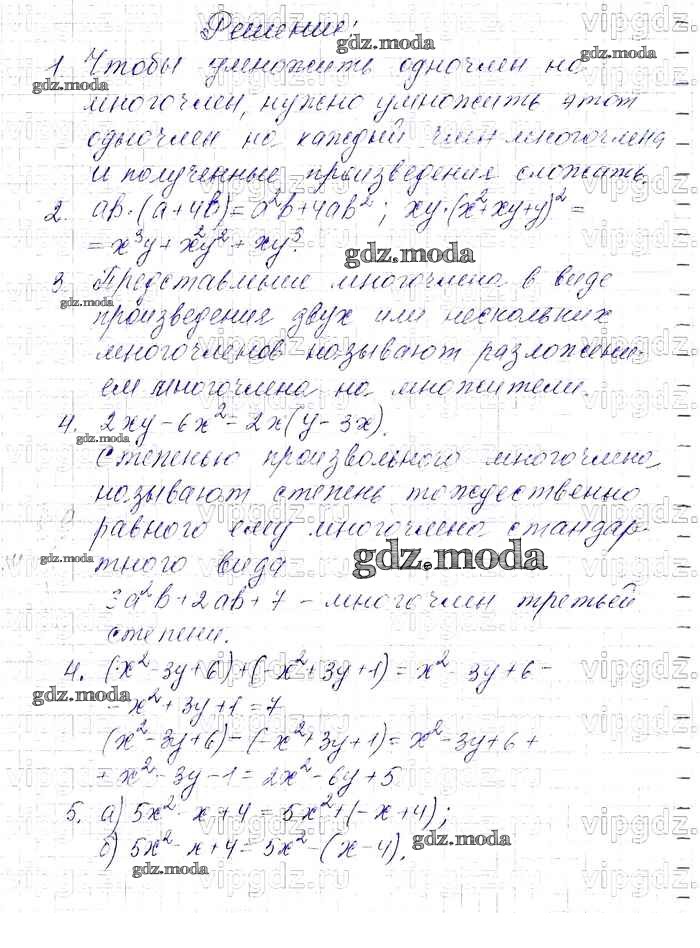 Решение:
1. Чтобы умножить одночлен на
многочлен, нужно умножить этот
одночлен на каждый член многочлена
и полученные произведения сложать.
2. ab·(a+4b)=a²b+4ab²; xy·(x²+xy+y)²=
=x³y+x²y²+xy³.
3. Представление многочлена в виде
произведения двух или нескольких
многочленов называют разложени-
ем многочлена на множители.
4. 2xy-6x²=2x(y-3x).
Степенью произвольного многочлена
называют степень тождественно
равного ему многочлена стандар-
тного вида
3a²b+2ab+7 - многочлен третьей
степени.
4. (x²-3y+6)+(-x²+3y+1)=x²-3y+6-
-x²+3y+1=7
(x²-3y+6)-(-x²+3y+1)=x²-3y+6+
+x²-3y-1=2x²-6y+5
5. а) 5x²-x+4=5x²+(-x+4);
б) 5x²-x+4=5x²-(x-4).
gdz.moda
gdz.moda
gdz.moda
gdz.moda
gdz.moda
gdz.moda
gdz.moda
gdz.moda
gdz.moda
vipgdz.ru